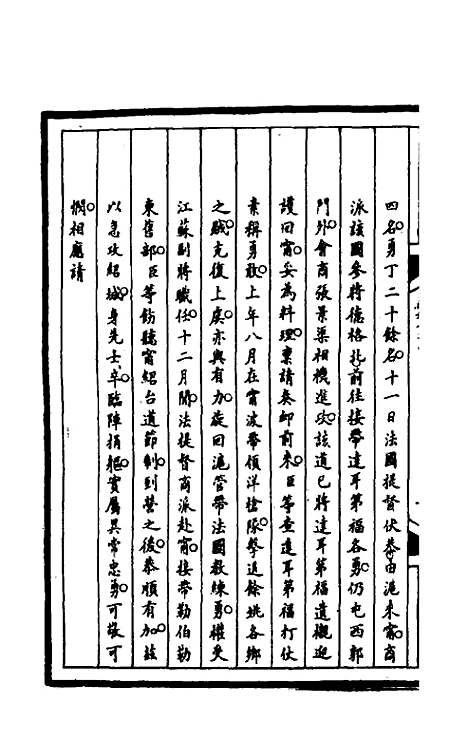 四名勇丁二十餘名十一日法國提督伏恭由滬来甯商
派該國參將德格北前往接帶達耳第福各勇仍屯西郭
門外會商張景渠相機進攻該道已將達耳第福遺櫬迎
護回甯妥為料理稟請奏卹前來臣等查達耳第福打仗
素稱勇敢上年八月在甯波帶領洋槍隊擊退餘姚各鄉
之賊克復上虞亦與有力旋回滬管帶法國教練勇權受
江蘇副將職任十二月間法提督商派赴甯接帶勒伯勒
東舊部臣等飭聽甯紹台道節制到營之後恭順有加茲
以急攻紹城身先士卒臨陣捐軀實屬異常忠勇可敬可
憫相應請